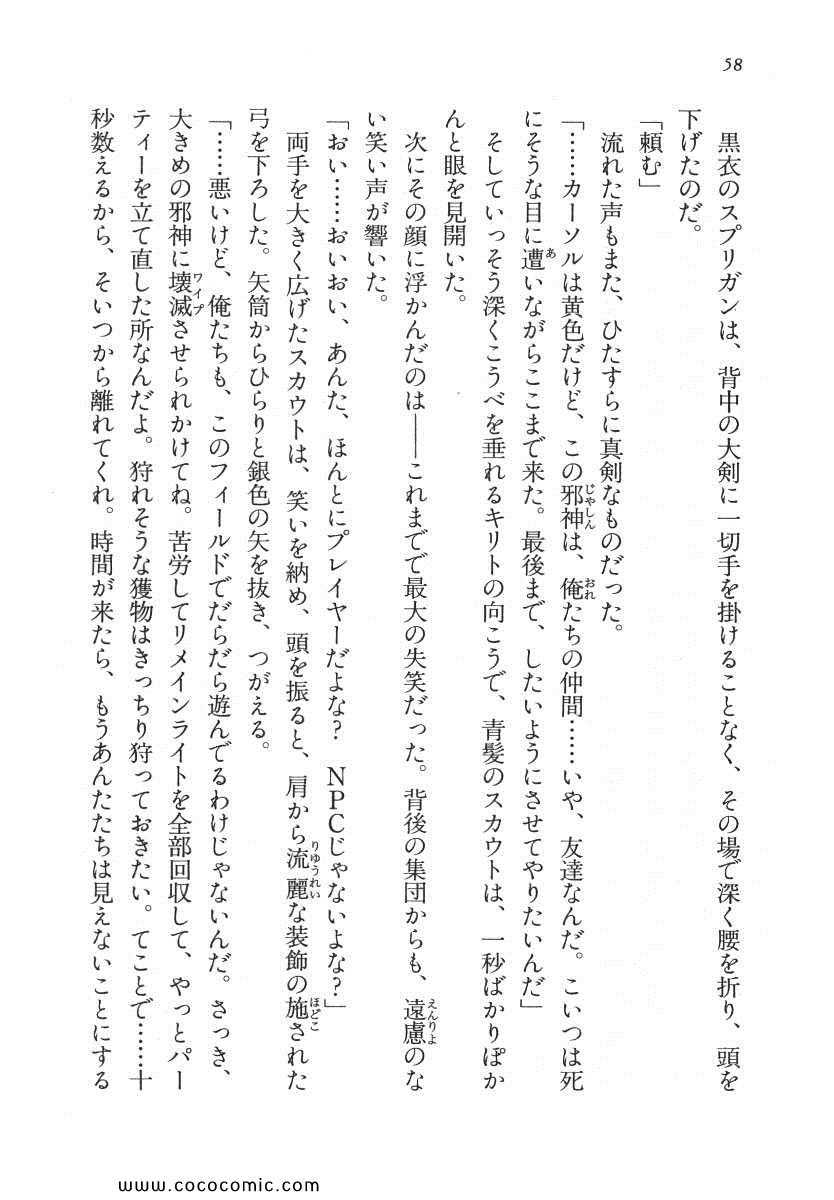 58
黒衣のスプリガンは、背中の大剣に一切手を掛けることなく、その場で深く腰を折り、頭を
下げたのだ。
「頼む」
流れた声もまた、ひたすらに真剣なものだった。
「……カーソルは黄色だけど、この邪神は、俺たちの仲間……いや、友達なんだ。こいつは死
にそうな目に遭いながらここまで来た。最後まで、したいようにさせてやりたいんだ」
そしていっそう深くこうべを垂れるキリトの向こうで、青髪のスカウトは、一秒ばかりぽか
んと眼を見開いた。
次にその顔に浮かんだのは――これまでで最大の失笑だった。背後の集団からも、遠慮のな
い笑い声が響いた。
「おい……おいおい、あんた、ほんとにプレイヤーだよな？　NPCじゃないよな？」
両手を大きく広げたスカウトは、笑いを納め、頭を振ると、肩から流麗な装飾の施された
弓を下ろした。矢筒からひらりと銀色の矢を抜き、つがえる。
「……悪いけど、俺たちも、このフィールドでだらだら遊んでるわけじゃないんだ。さっき、
大きめの邪神に壊滅させられかけてね。苦労してリメインライトを全部回収して、やっとパー
ティーを立て直した所なんだよ。狩れそうな獲物はきっちり狩っておきたい。てことで……十
秒数えるから、そいつから離れてくれ。時間が来たら、もうあんたたちは見えないことにする
www.cococomic.com